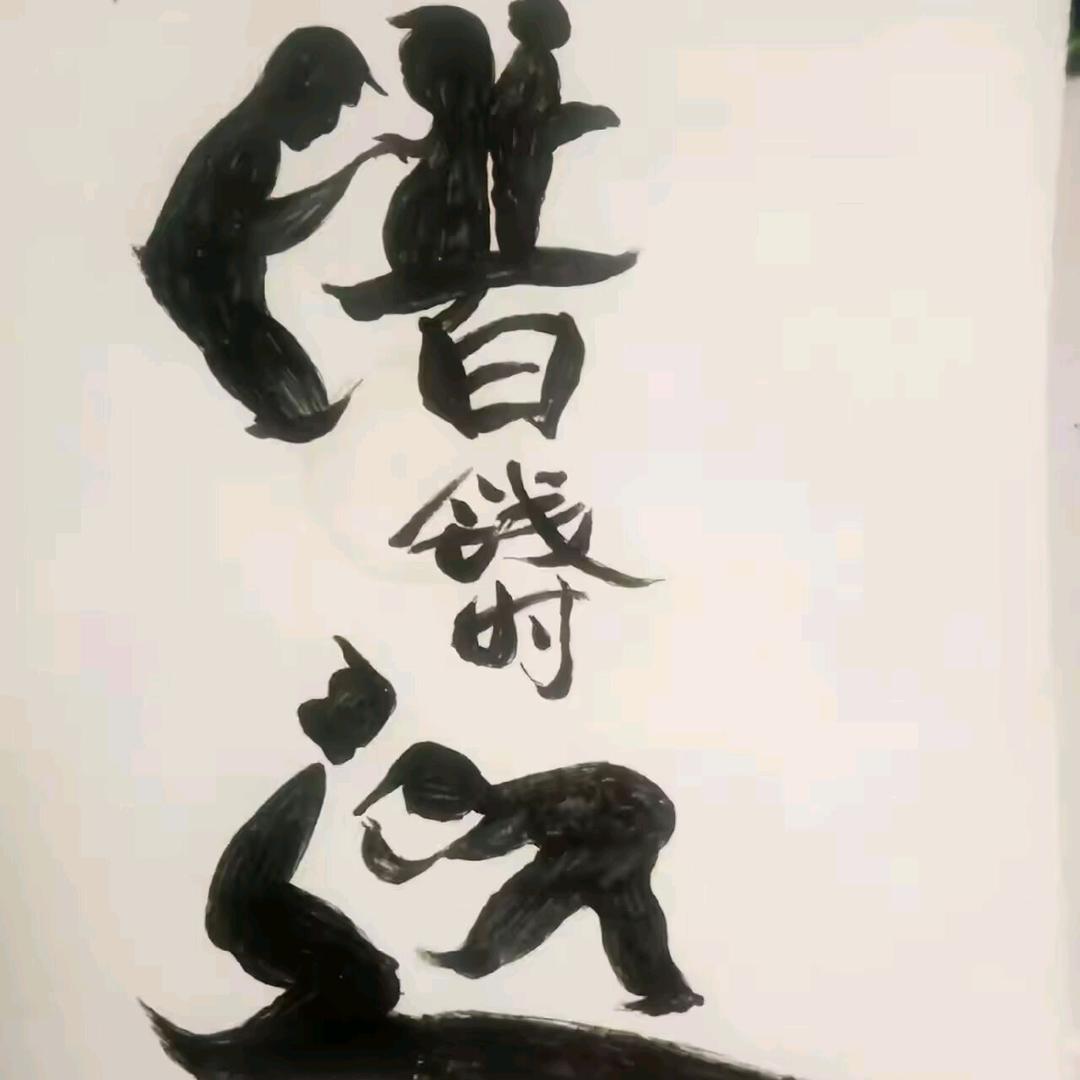 借钱时还